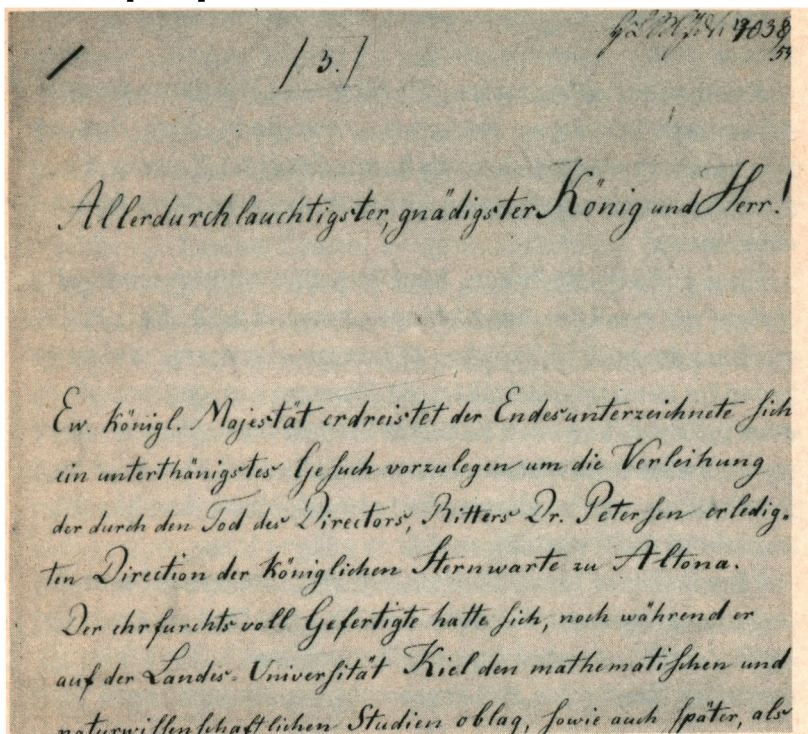 /3./
Allerdurchlauchtigster, gnädigster König und Herr!
Ew. Königl. Majestät erdreistet der Endesunterzeichnete sich
ein unterthänigstes Gesuch vorzulegen um die Verleihung
der durch den Tod des Directors, Ritters Dr. Petersen erledig-
ten Direction der Königlichen Sternwarte zu Altona.
Der ehrfurchtsvoll Gefertigte hatte sich, noch während er
auf der Landes-Universität Kiel den mathematischen und
naturwissenschaftlichen Studien oblag, sowie auch später, als